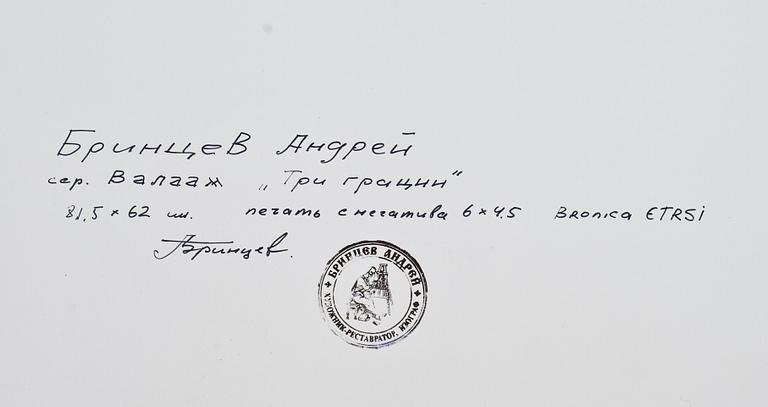 Бринцев Андрей
сер. Валаам „Три грации“
81,5 × 62 см. печать с негатива 6 × 4.5 Bronica ETRSi
АБринцев.
БРИНЦЕВ АНДРЕЙ
ХУДОЖНИК-РЕСТАВРАТОР, ИЗОГРАФ